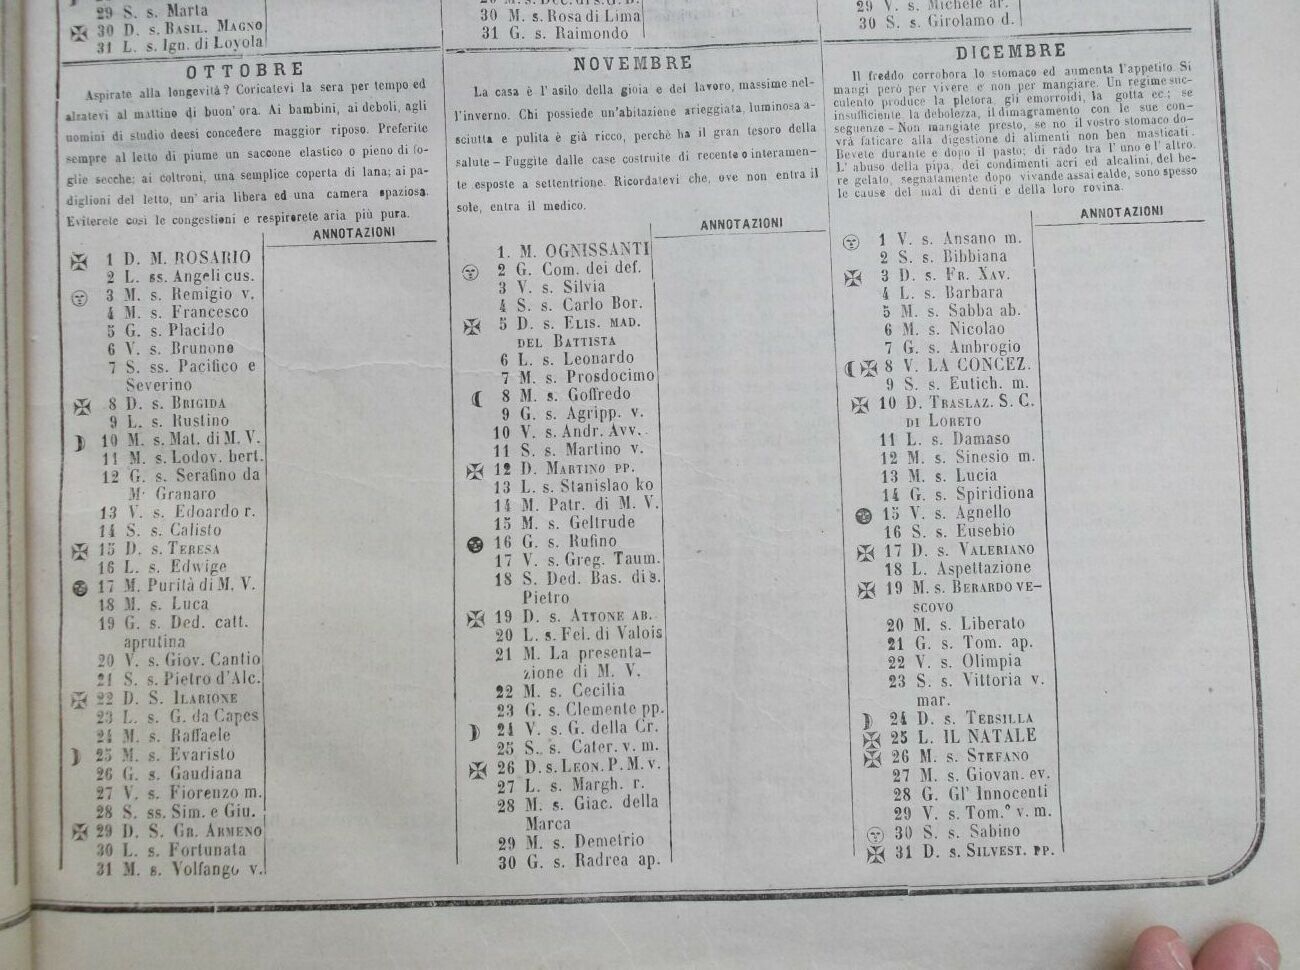 29 S. s. Marta
30 D. s. BASIL. MAGNO
31 L. s. Ign. di Loyola
30 M. s. Rosa di Lima
31 G. s. Raimondo
29 V. s. Michele ar.
30 S. s. Girolamo d.
OTTOBRE
Aspirate alla longevità? Coricatevi la sera per tempo ed
alzatevi al mattino di buon' ora. Ai bambini, ai deboli, agli
uomini di studio deesi concedere maggior riposo. Preferite
sempre al letto di piume un saccone elastico o pieno di fo-
glie secche; ai coltroni, una semplice coperta di lana; ai pa-
diglioni del letto, un' aria libera ed una camera spaziosa.
Eviterete così le congestioni e respirerete aria più pura.
ANNOTAZIONI
1 D. M. ROSARIO
2 L. ss. Angeli cus.
3 M. s. Remigio v.
4 M. s. Francesco
5 G. s. Placido
6 V. s. Brunone
7 S. ss. Pacifico e
Severino
8 D. s. BRIGIDA
9 L. s. Rustino
10 M. s. Mat. di M. V.
11 M. s. Lodov. bert.
12 G. s. Serafino da
M. Granaro
13 V. s. Edoardo r.
14 S. s. Calisto
15 D. s. TERESA
16 L. s. Edwige
17 M. Purità di M. V.
18 M. s. Luca
19 G. s. Ded. catt.
aprutina
20 V. s. Giov. Cantio
21 S. s. Pietro d'Alc.
22 D. S. ILARIONE
23 L. s. G. da Capes
24 M. s. Raffaele
25 M. s. Evaristo
26 G. s. Gaudiana
27 V. s. Fiorenzo m.
28 S. ss. Sim. e Giu.
29 D. S. GR. ARMENO
30 L. s. Fortunata
31 M. s. Volfango v.
NOVEMBRE
La casa è l' asilo della gioia e del lavoro, massime nel-
l'inverno. Chi possiede un'abitazione arieggiata, luminosa a-
sciutta e pulita è già ricco, perchè ha il gran tesoro della
salute - Fuggite dalle case costruite di recente o interamen-
te esposte a settentrione. Ricordatevi che, ove non entra il
sole, entra il medico.
ANNOTAZIONI
1. M. OGNISSANTI
2 G. Com. dei def.
3 V. s. Silvia
4 S. s. Carlo Bor.
5 D. s. ELIS. MAD.
DEL BATTISTA
6 L. s. Leonardo
7 M. s. Prosdocimo
8 M. s. Goffredo
9 G. s. Agripp. v.
10 V. s. Andr. Avv.
11 S. s. Martino v.
12 D. MARTINO PP.
13 L. s. Stanislao ko
14 M. Patr. di M. V.
15 M. s. Geltrude
16 G. s. Rufino
17 V. s. Greg. Taum.
18 S. Ded. Bas. di s.
Pietro
19 D. s. ATTONE AB.
20 L. s. Fel. di Valois
21 M. La presenta-
zione di M. V.
22 M. s. Cecilia
23 G. s. Clemente pp.
24 V. s. G. della Cr.
25 S. s. Cater. v. m.
26 D. s. LEON. P. M. v.
27 L. s. Margh. r.
28 M. s. Giac. della
Marca
29 M. s. Demetrio
30 G. s. Radrea ap.
DICEMBRE
Il freddo corrobora lo stomaco ed aumenta l'appetito. Si
mangi però per vivere e non per mangiare. Un regime suc-
culento produce la pletora, gli emorroidi, la gotta ec.; se
insufficiente, la debolezza, il dimagramento con le sue con-
seguenze - Non mangiate presto, se no il vostro stomaco do-
vrà faticare alla digestione di alimenti non ben masticati.
Bevete durante e dopo il pasto; di rado tra l' uno e l' altro.
L' abuso della pipa, dei condimenti acri ed alcalini, del be-
re gelato, segnatamente dopo vivande assai calde, sono spesso
le cause del mal di denti e della loro rovina.
ANNOTAZIONI
1 V. s. Ansano m.
2 S. s. Bibbiana
3 D. s. FR. XAV.
4 L. s. Barbara
5 M. s. Sabba ab.
6 M. s. Nicolao
7 G. s. Ambrogio
8 V. LA CONCEZ.
9 S. s. Eutich. m.
10 D. TRASLAZ. S. C.
DI LORETO
11 L. s. Damaso
12 M. s. Sinesio m.
13 M. s. Lucia
14 G. s. Spiridiona
15 V. s. Agnello
16 S. s. Eusebio
17 D. s. VALERIANO
18 L. Aspettazione
19 M. s. BERARDO VE-
SCOVO
20 M. s. Liberato
21 G. s. Tom. ap.
22 V. s. Olimpia
23 S. s. Vittoria v.
mar.
24 D. s. TERSILLA
25 L. IL NATALE
26 M. s. STEFANO
27 M. s. Giovan. ev.
28 G. Gl' Innocenti
29 V. s. Tom.º v. m.
30 S. s. Sabino
31 D. s. SILVEST. PP.